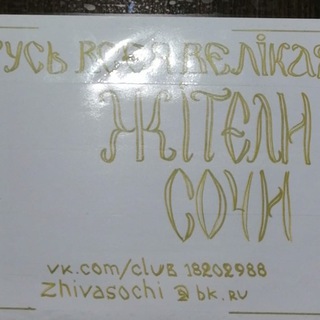 РУСЬ ВСЕЯ ВЕЛІКАЯ
ЖІТЕЛИ
СОЧИ
vk.com/club 18202988
zhivasochi @ bk.ru